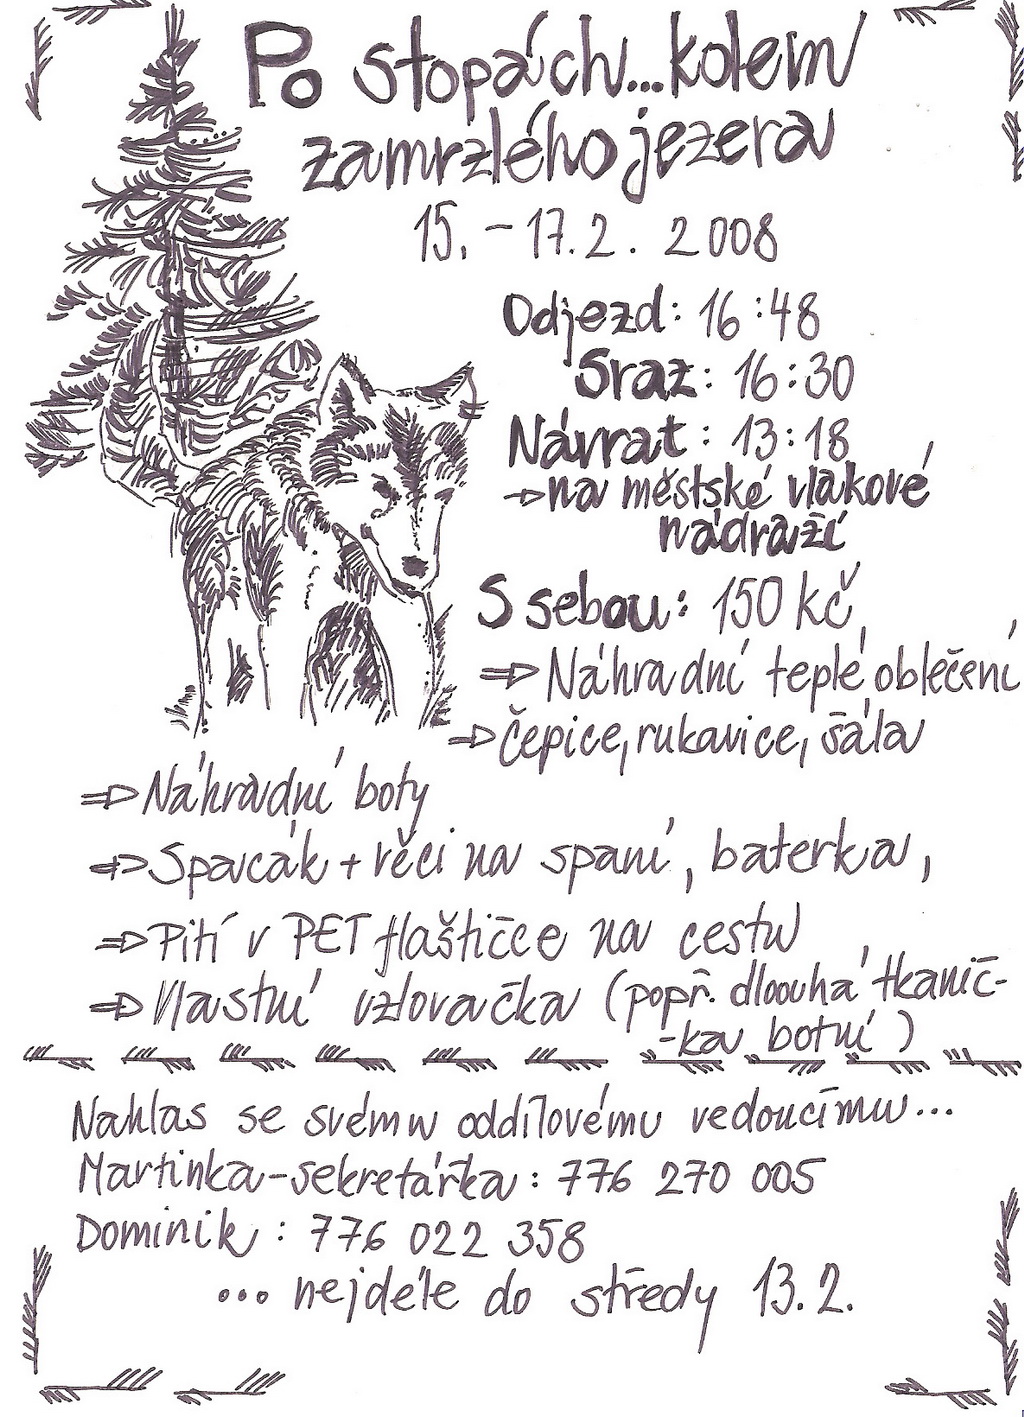 Po stopách...kolem
zamrzlého jezera
15. - 17. 2. 2008
Odjezd: 16:48
Sraz: 16:30
Návrat: 13:18
⇒na městské vlakové
nádraží
S sebou: 150 kč,
⇒Náhradní teplé oblečení
⇒čepice, rukavice, šála
⇒Náhradní boty
⇒Spacák + věci na spaní, baterka,
⇒Pití v PET flaštičce na cestu
⇒Vlastní uzlovačka (popř. dloouhá tkanič-
-ka botní)
Nahlas se svému oddílovému vedoucímu...
Martinka-sekretářka: 776 270 005
Dominik: 776 022 358
... nejdéle do středy 13.2.